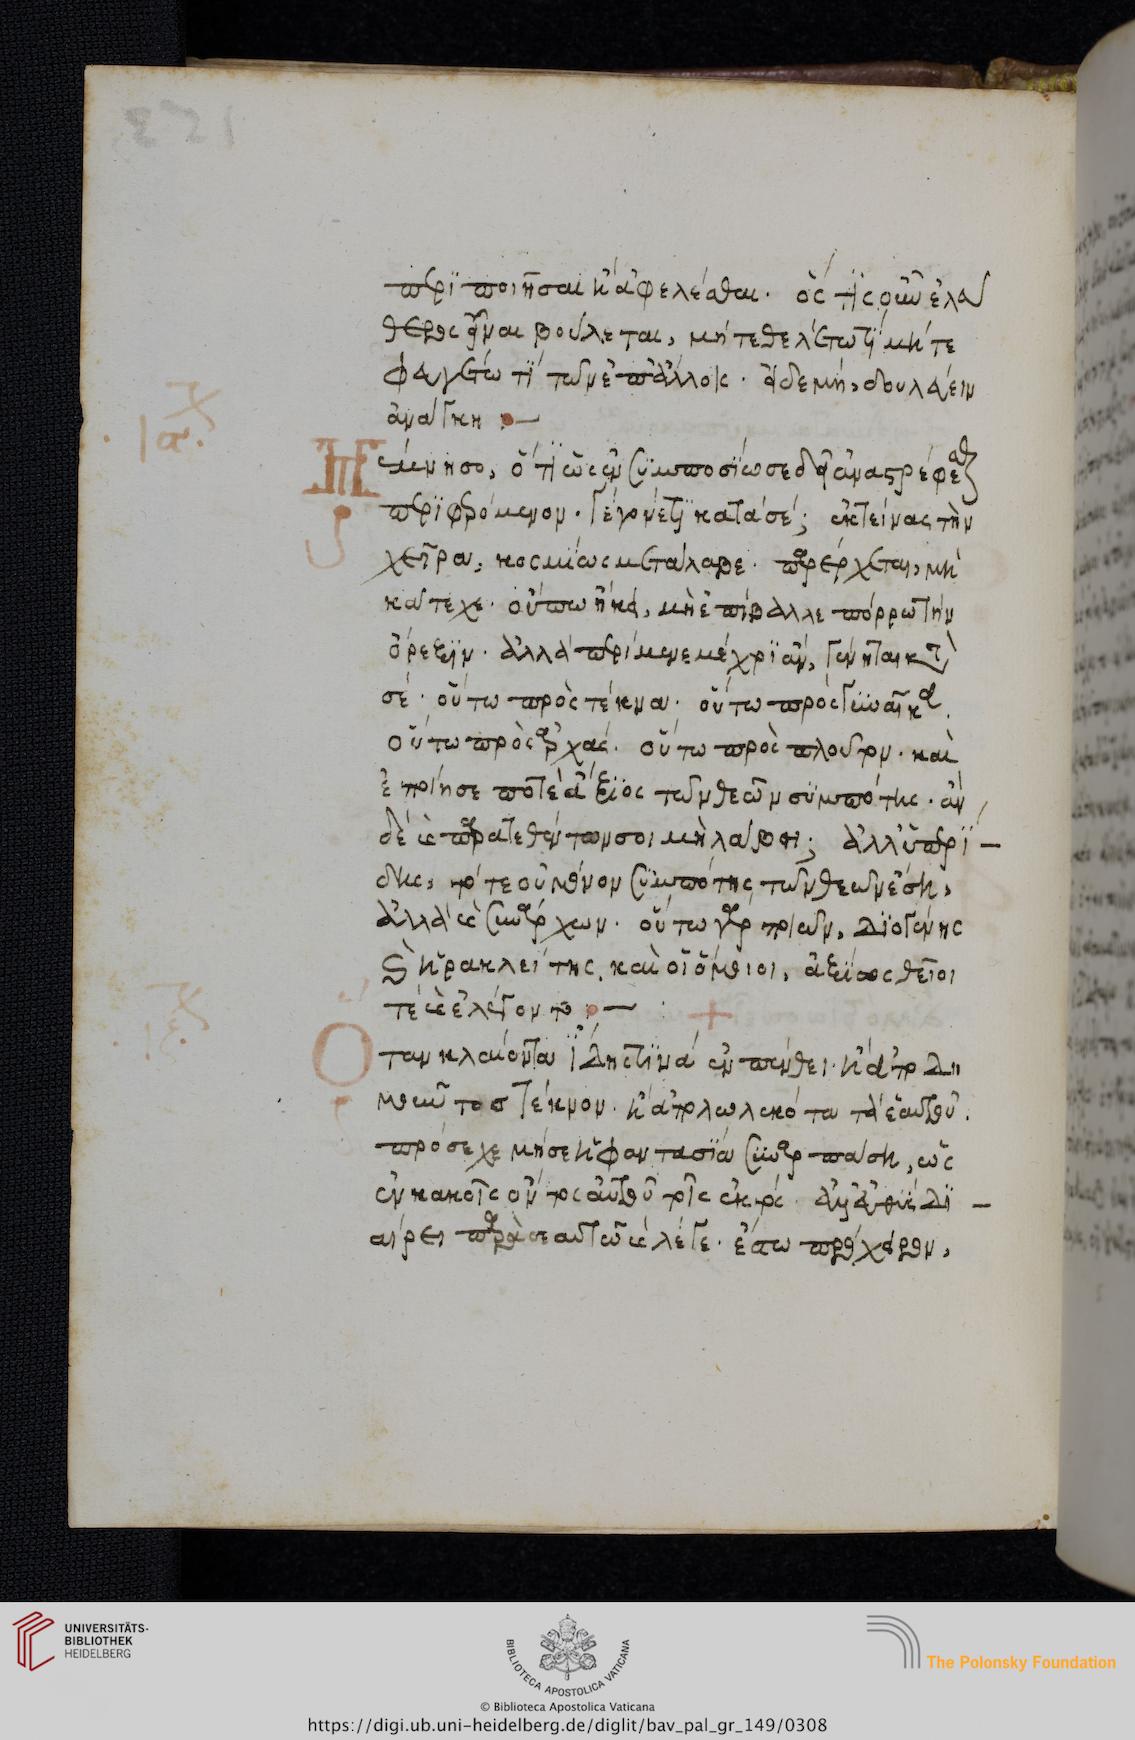 περιποιῆσαι ἢ ἀφελέσθαι. ὅστις οὖν ἐλευ
θερος εἶναι βούλεται, μήτε θελέτω τι μήτε
φευγέτω τι τῶν ἐπ' ἄλλοις. εἰ δὲ μή, δουλεύειν
ἀνάγκη
ιε
Μέμνησο, ὅτι ὡς ἐν συμποσίω σε δεῖ ἀναστρέφεσθαι
περιφερόμενον. γέγονέ τι κατὰ σέ; ἐκτείνας τὴν
χεῖρα, κοσμίως μετάλαβε. παρέρχεται, μὴ
κάτεχε. οὔπω ἥκει, μὴ ἐπίβαλλε πόρρω τὴν
ὄρεξιν. ἀλλὰ περίμενε μέχρι ἂν, γένηται κατὰ
σέ. οὕτω πρὸς τέκνα. οὕτω πρὸς γυναῖκα.
οὕτω πρὸς ἀρχάς. οὕτω πρὸς πλοῦτον. καὶ
ποτε ἄξιος τῶν θεῶν συμπότης. ἂν
δὲ καὶ παρατεθέντων σοι μὴ λάβης; ἀλλ' ὑπερί
δης, τότε οὐ μόνον συμπότης τῶν θεῶν ἔση,
ἀλλὰ καὶ συνάρχων. οὕτω γὰρ ποιῶν, Διογένης
καὶ Ἡράκλειτος καὶ οἱ ὅμοιοι, ἀξίως θεῖοι
τε καὶ ἐλέγοντο
ις
Ὅταν κλαίοντα ἴδης τινὰ ἐν πένθει. ἢ ἀποδη
μοῦντος τέκνου. ἢ ἀπολωλεκότα τὰ ἑαυτοῦ.
πρόσεχε μή σε ἡ φαντασία συναρπάση, ὡς
ἐν κακοῖς ὄντος αὐτοῦ τοῖς ἐκτός. ἀλλ' εὐθὺς δι
αίρει παρὰ σεαυτῶ καὶ λέγε. ἔστω πρόχειρον,
UNIVERSITÄTS-
BIBLIOTHEK
HEIDELBERG
BIBLIOTECA APOSTOLICA VATICANA
The Polonsky Foundation
© Biblioteca Apostolica Vaticana
https://digi.ub.uni-heidelberg.de/diglit/bav_pal_gr_149/0308